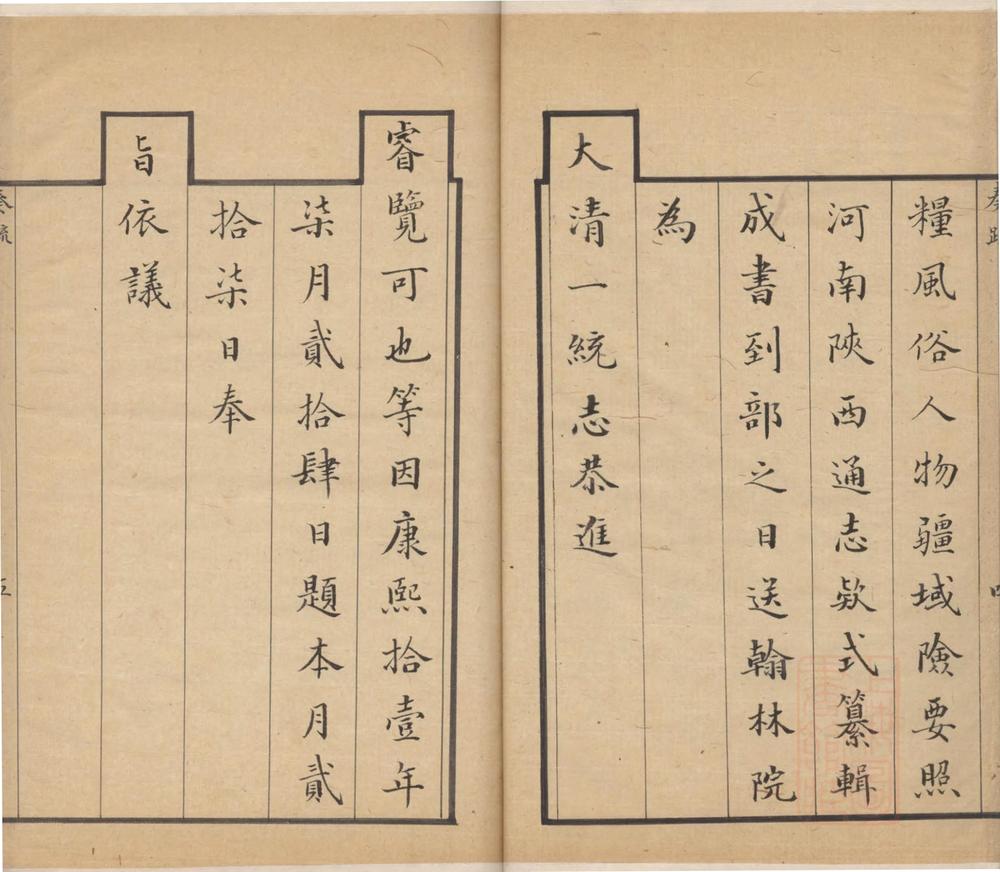 糧風俗人物疆域險要照
河南陝西通志欵式纂輯
成書到部之日送翰林院
為
大清一統志恭進
睿覽可也等因康熙拾壹年
柒月貳拾肆日題本月貳
拾柒日奉
旨依議